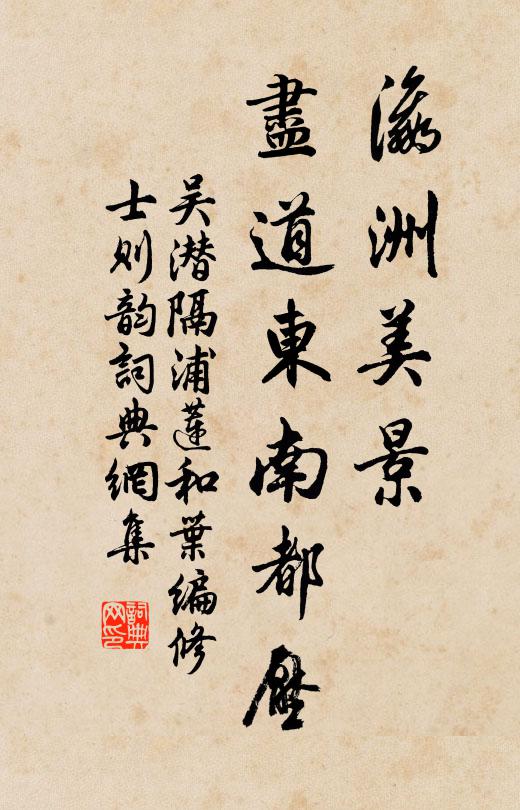 瀛洲美景
盡道東南都壓
吴潜隔浦蓮和葉編修
士则韵詞典網集
詞典
网印